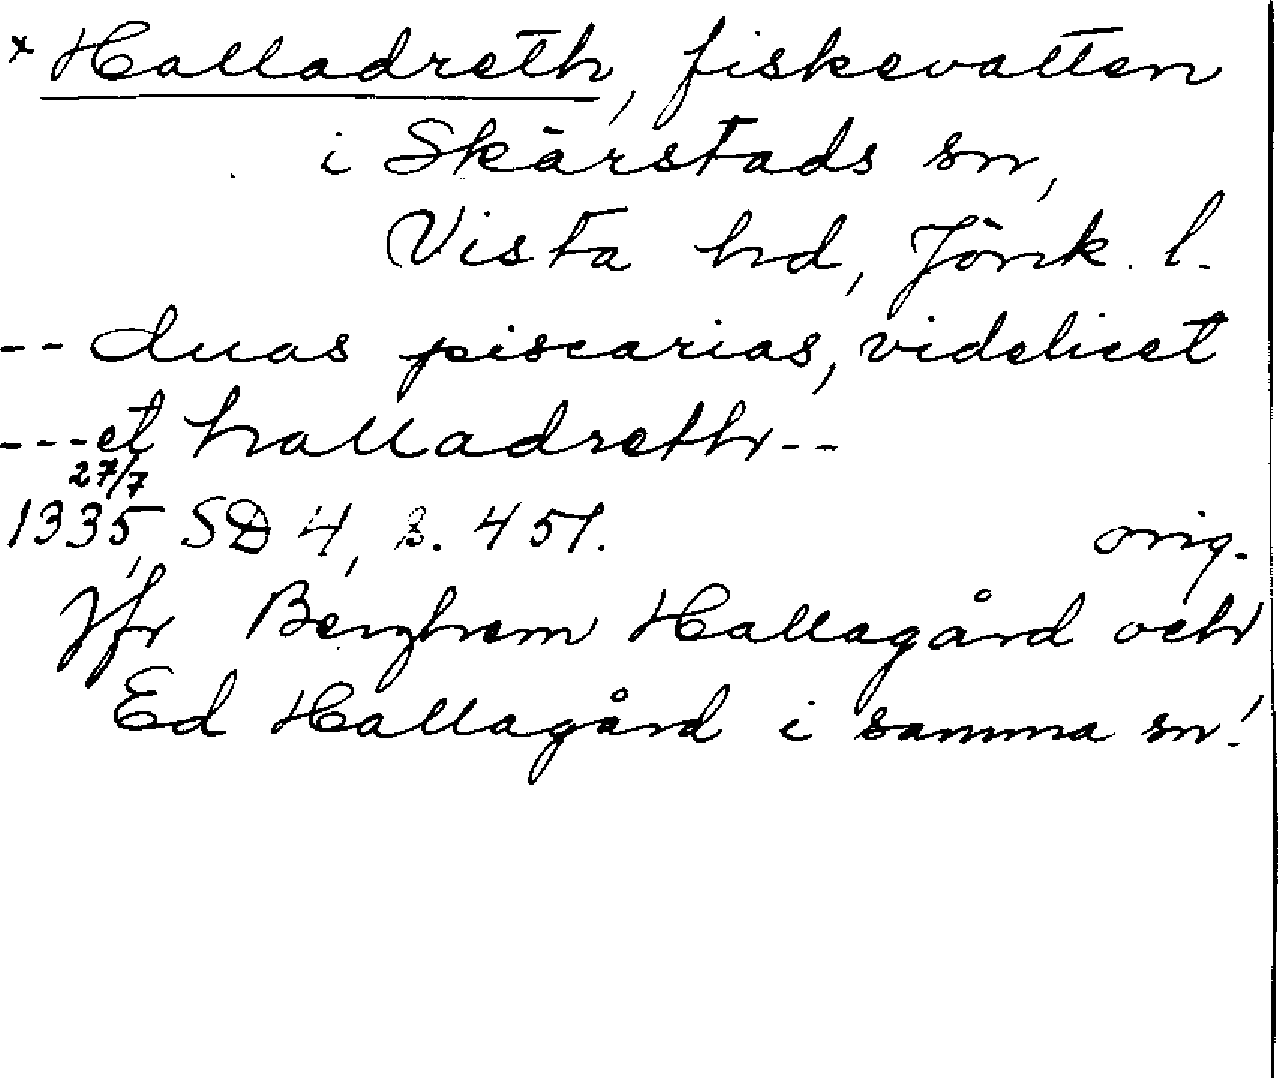 × Halladreth, fiskevatten
i Skärstads sn,
Vista hd, Jönk. l.
-- duas piscarias, videlicet
---et halladreth--
27/7
1335, SD 4, s. 451. orig.
Jfr Berghem Hallagård och
Ed Hallagård i samma sn!